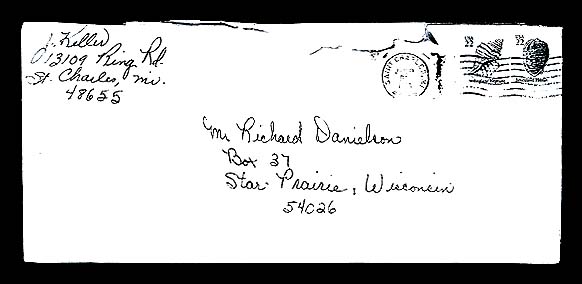 J. Keller
13109 Ring Rd.
St. Charles, mi.
48655
22
22
Mr Richard Danielson
Box 37
Star Prairie, Wisconsin
54026